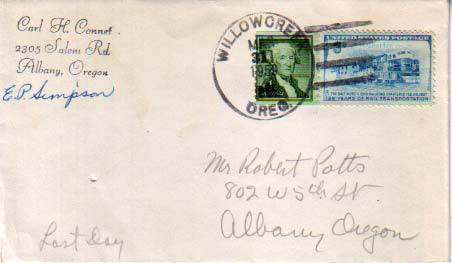 Carl H. Connet
2305 Salem Rd
Albany, Oregon
E.P. Simpson
WILLOWCREEK
31
OREG.
UNITED STATES POSTAGE
125 YEARS OF RAIL TRANSPORTATION
Mr Robert Potts
802 W 5th St
Albany Oregon
Last Day